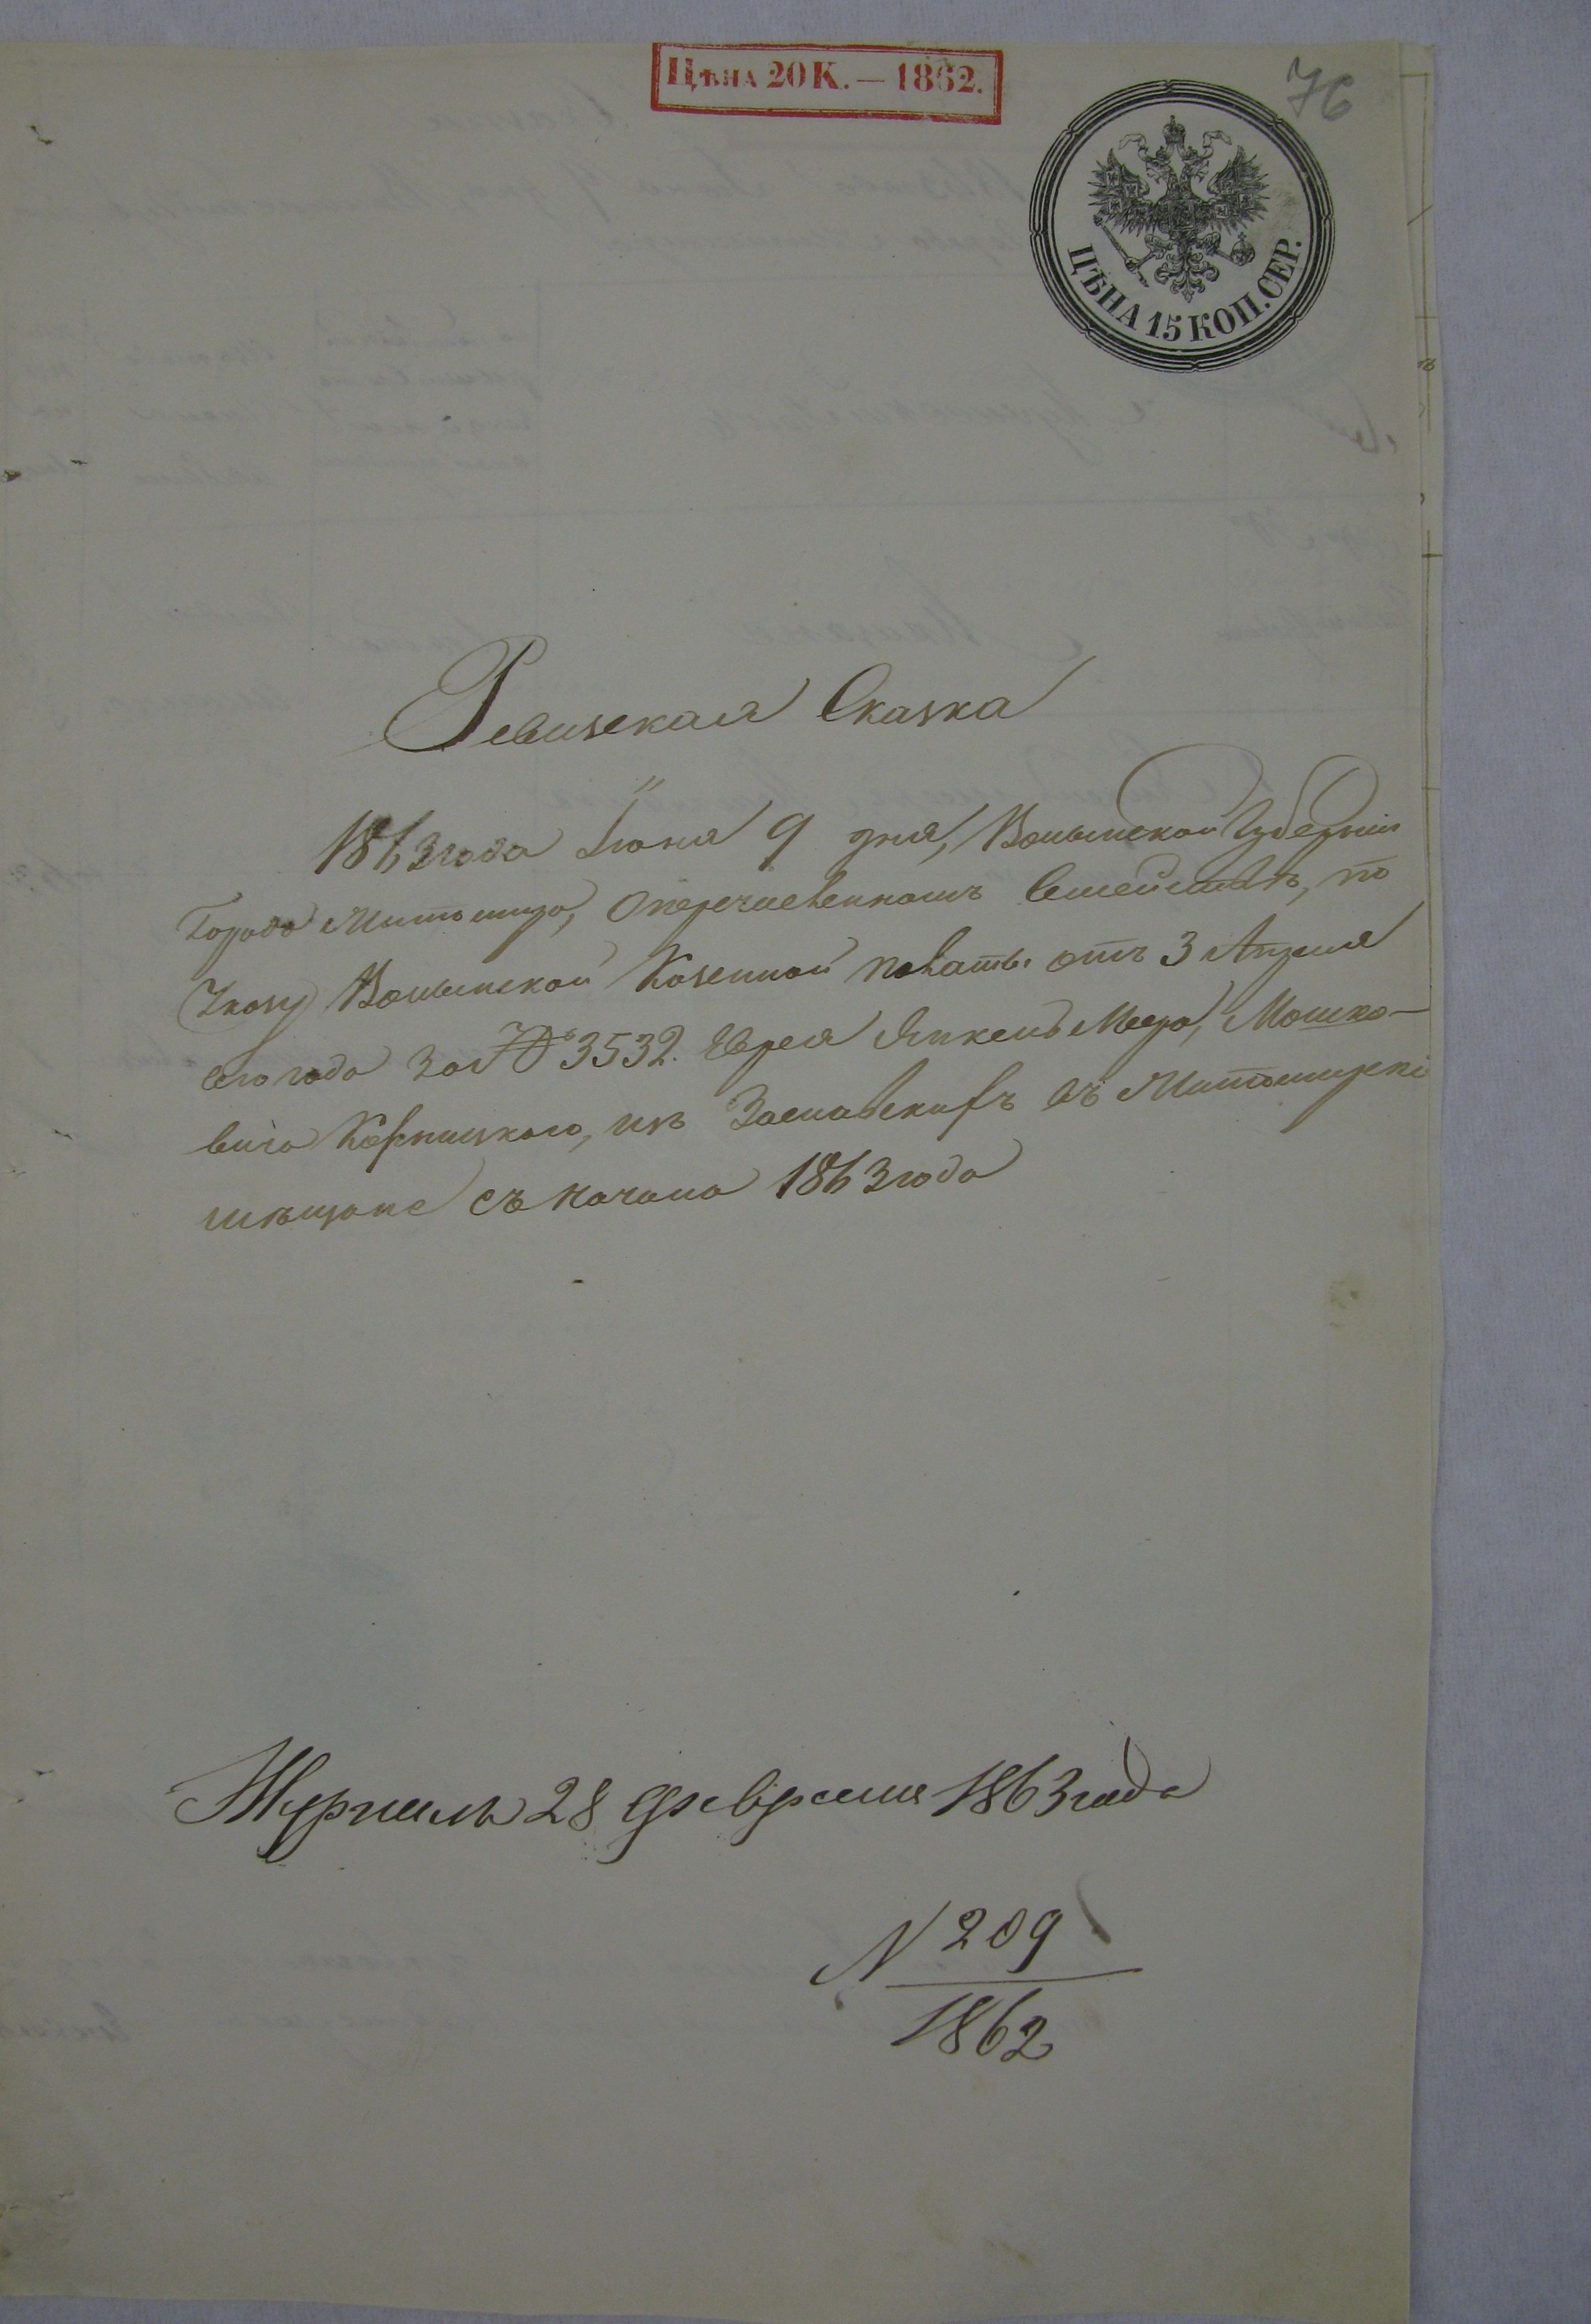 ЦѢНА 20 К. — 1862.
76
ЦѢНА 15 КОП. СЕР.
Ревизская Сказка
1863 года Іюня 9 дня, Волынской Губерніи
Города Житомира, о перечисленномъ Семействѣ, по
Указу Волынской Казенной палаты отъ 3 Апреля
сего года за № 3532. Еврея Янкель Меера, Мошко-
вича из Заславскихъ въ Житомирскі
мѣщане съ начала 1863 года
Журналъ 28 февраля 1863 года
N 209
1862